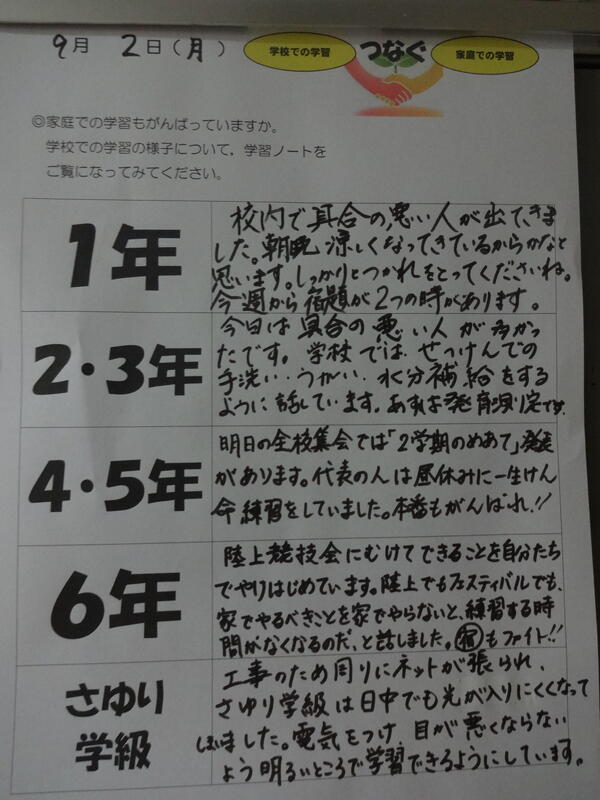 9月 2日(月) 学校での学習 つなぐ 家庭での学習
◎家庭での学習もがんばっていますか。
学校での学習の様子について,学習ノートを
ご覧になってみてください。
1年
校内で具合の悪い人が出てきま
した。朝晩涼しくなってきているからかなと
思います。しっかりとつかれをとってくださいね。
今週から宿題が2つの時があります。
2・3年
今日は具合の悪い人が多かっ
たです。学校では、せっけんでの
手洗い・うがい・水分補給をする
ように話しています。あすは発育測定です。
4・5年
明日の全校集会では「2学期のめあて」発表
があります。代表の人は昼休みに一生けん
命練習をしていました。本番もがんばれ!!
6年
陸上競技会にむけてできることを自分たち
でやりはじめています。陸上でもフェスティバルでも、
家でやるべきことを家でやらないと、練習する時
間がなくなるのだ、と話しました。宿もファイト!!
さゆり
学級
工事のため周りにネットが張られ、
さゆり学級は日中でも光が入りにくくなって
しまいました。電気をつけ、目が悪くならない
よう明るいところで学習できるようにしています。